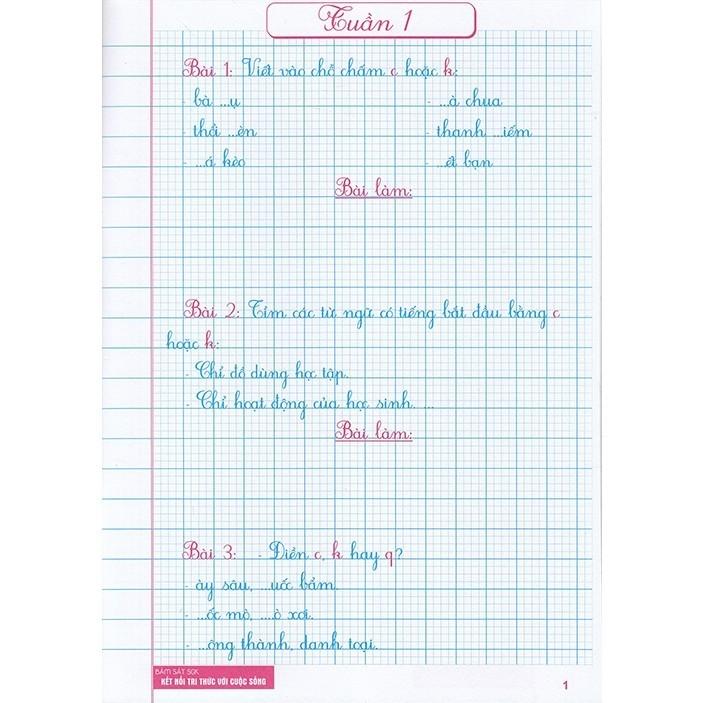 Tuần 1
Bài 1: Viết vào chỗ chấm c hoặc k:
- bà ...ụ - ...à chua
- thổi ...èn - thanh ...iếm
- ...á kèo - ...ết bạn
Bài làm:
Bài 2: Tìm các từ ngữ có tiếng bắt đầu bằng c
hoặc k:
- Chỉ đồ dùng học tập.
- Chỉ hoạt động của học sinh. ...
Bài làm:
Bài 3: - Điền c, k hay q?
- ày sâu, ...uốc bẩm.
- ...ốc mò, ...ò xơi.
- ...ông thành, danh toại.
BÁM SÁT SGK
KẾT NỐI TRI THỨC VỚI CUỘC SỐNG
1